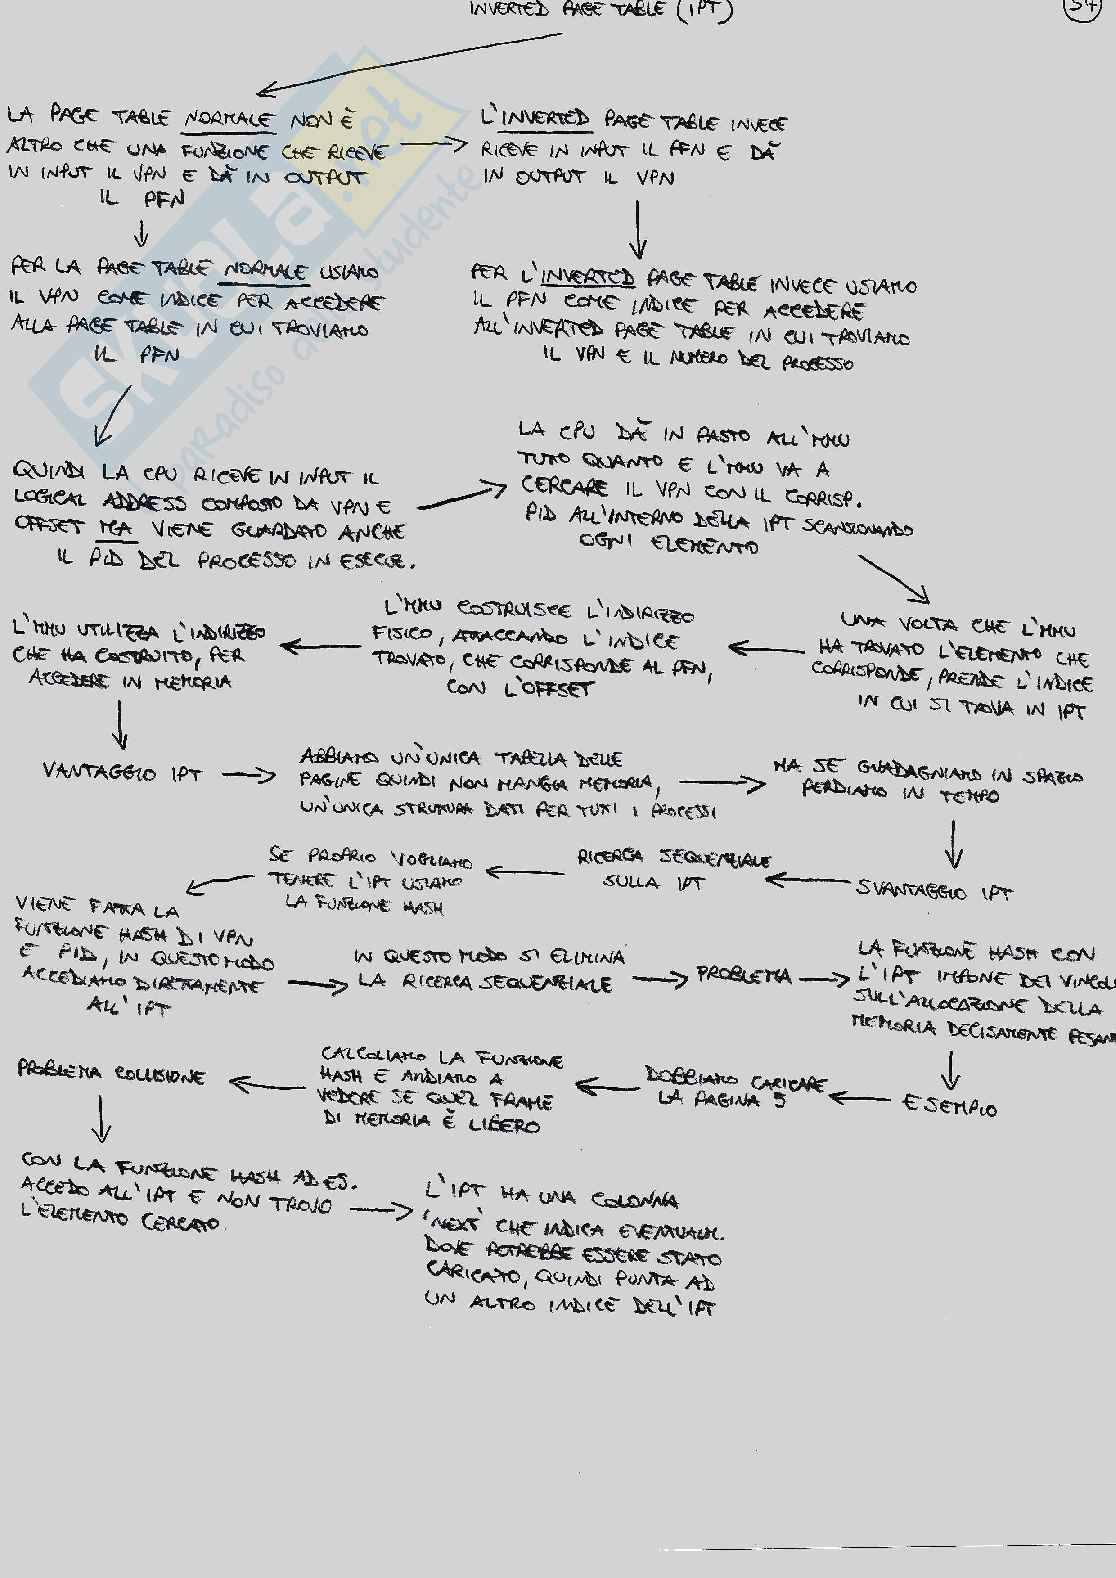 INVERTED PAGE TABLE (IPT)
54
LA PAGE TABLE NORMALE NON È
ALTRO CHE UNA FUNZIONE CHE RICEVE
IN INPUT IL VPN E DÀ IN OUTPUT
IL PFN
L'INVERTED PAGE TABLE INVECE
RICEVE IN INPUT IL PFN E DÀ
IN OUTPUT IL VPN
PER LA PAGE TABLE NORMALE USIAMO
IL VPN COME INDICE PER ACCEDERE
ALLA PAGE TABLE IN CUI TROVIAMO
IL PFN
PER L'INVERTED PAGE TABLE INVECE USIAMO
IL PFN COME INDICE PER ACCEDERE
ALL'INVERTED PAGE TABLE IN CUI TROVIAMO
IL VPN E IL NUMERO DEL PROCESSO
QUINDI LA CPU RICEVE IN INPUT IL
LOGICAL ADDRESS COMPOSTO DA VPN E
OFFSET MA VIENE GUARDATO ANCHE
IL PID DEL PROCESSO IN ESECUZ.
LA CPU DÀ IN PASTO ALL'MMU
TUTTO QUANTO E L'MMU VA A
CERCARE IL VPN CON IL CORRISP.
PID ALL'INTERNO DELLA IPT SCANSIONANDO
OGNI ELEMENTO
UNA VOLTA CHE L'MMU
HA TROVATO L'ELEMENTO CHE
CORRISPONDE, PRENDE L'INDICE
IN CUI SI TROVA IN IPT
L'MMU COSTRUISCE L'INDIRIZZO
FISICO, ATTACCANDO L'INDICE
TROVATO, CHE CORRISPONDE AL PFN,
CON L'OFFSET
L'MMU UTILIZZA L'INDIRIZZO
CHE HA COSTRUITO, PER
ACCEDERE IN MEMORIA
VANTAGGIO IPT
ABBIAMO UN'UNICA TABELLA DELLE
PAGINE QUINDI NON MANGIA MEMORIA,
UN'UNICA STRUTTURA DATI PER TUTTI I PROCESSI
MA SE GUADAGNIAMO IN SPAZIO
PERDIAMO IN TEMPO
SVANTAGGIO IPT
RICERCA SEQUENZIALE
SULLA IPT
SE PROPRIO VOGLIAMO
TENERE L'IPT USIAMO
LA FUNZIONE HASH
VIENE FATTA LA
FUNZIONE HASH DI VPN
E PID, IN QUESTO MODO
ACCEDIAMO DIRETTAMENTE
ALL'IPT
IN QUESTO MODO SI ELIMINA
LA RICERCA SEQUENZIALE
PROBLEMA
LA FUNZIONE HASH CON
L'IPT IMPONE DEI VINCOL
SULL'ALLOCAZIONE DELLA
MEMORIA DECISAMENTE PESAN
ESEMPIO
DOBBIAMO CARICARE
LA PAGINA 5
CALCOLIAMO LA FUNZIONE
HASH E ANDIAMO A
VEDERE SE QUEL FRAME
DI MEMORIA È LIBERO
PROBLEMA COLLISIONE
CON LA FUNZIONE HASH AD ES.
ACCEDO ALL'IPT E NON TROVO
L'ELEMENTO CERCATO.
L'IPT HA UNA COLONNA
"NEXT" CHE INDICA EVENTUALM.
DOVE POTREBBE ESSERE STATO
CARICATO, QUINDI PUNTA AD
UN ALTRO INDICE DELL'IPT
SKUOLA.net
paradiso dello skudente